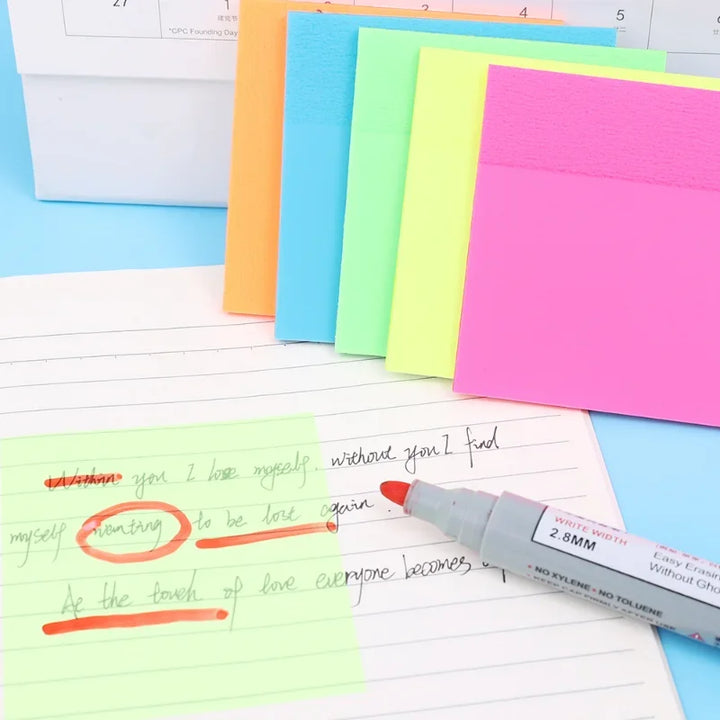 27
1
4
5
*CPC Founding Day
Within you I lose myself. without you I find
myself wanting to be lost again.
At the touch of love everyone becomes
WRITE WIDTH
2.8MM
Easy Erasing
Without Gho
• NO XYLENE • NO TOLUENE
KEEP CAP FIRMLY AFTER USE